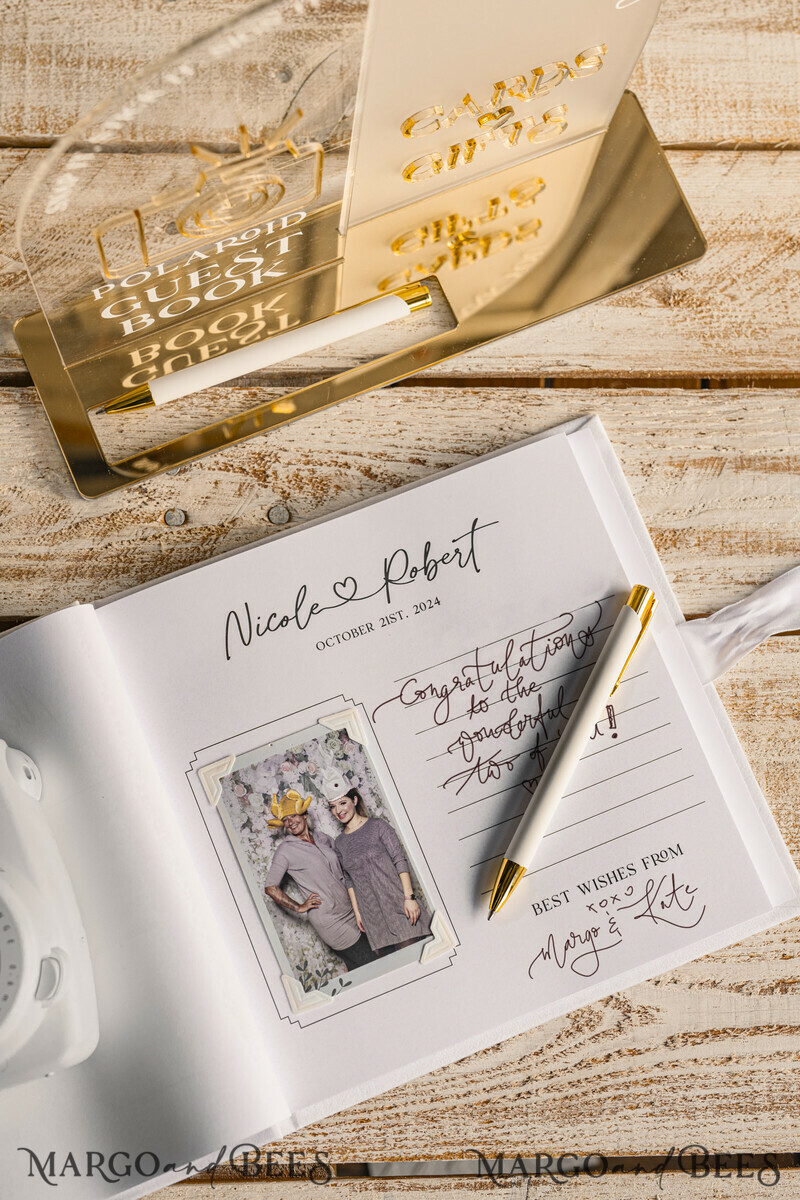 CARDS
&
GIFTS
POLAROID
GUEST
BOOK
Nicole Robert
OCTOBER 21ST, 2024
Congratulations
to the
wonderful
two of
BEST WISHES FROM
xoxo
Margo & Kate
MARGO and BEES MARGO and BEES